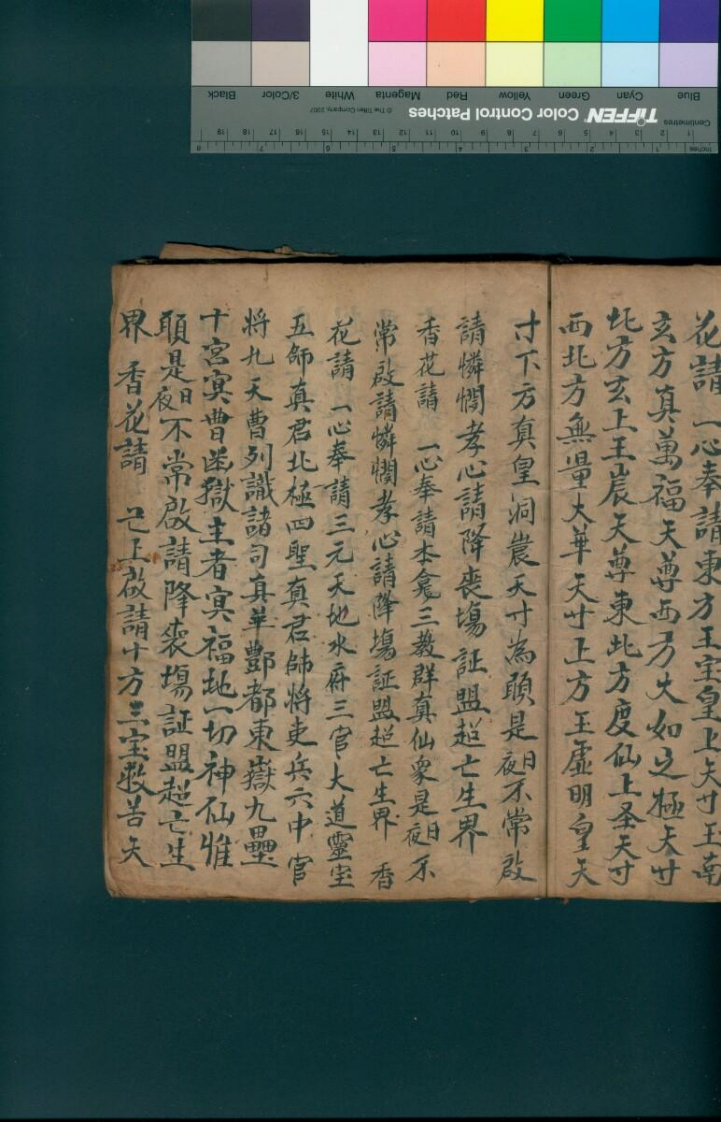 花請　一心奉請東方玉宝皇上天寸王南
玄方真萬福天尊西方太如之極天寸
北方玄上玉辰天尊東北方度仙上圣天寸
西北方無量太華天寸上方玉虛明皇天
寸下方真皇洞天寸為願是日夜不常啟
請憐憫孝心請降喪場証盟超亡生界
香花請　一心奉請本龛三教群真仙衆是日夜不
常啟請憐憫孝心請降場証盟超亡生界　香
花請　一心奉請三元天地水府三官大道靈宝
五師真君北極四聖真君師將吏兵六中官
將九天曹列識諸司真宰酆都東嶽九壘
十宮冥曹凾獄主者冥福地一切神仙惟
願是日夜不常啟請降喪場証盟超亡生
界　香花請　已上啟請十方三宝救苦天
Blue Cyan Green Yellow Red Magenta White 3/Color Black
TIFFEN Color Control Patches
© The Tiffen Company, 2007
Centimetres
1 2 3 4 5 6 7 8 9 10 11 12 13 14 15 16 17 18 19
Inches
1 2 3 4 5 6 7 8